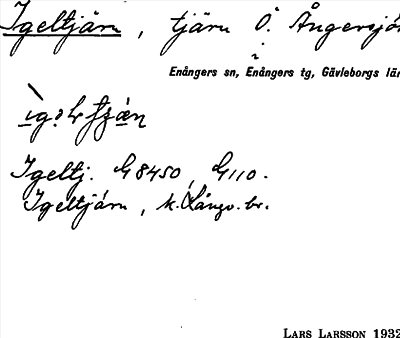 Igeltjärn, tjärn Ö. Ångersjö
Enångers sn, Enångers tg, Gävleborgs län
Igeltj. G 8450, G 110.
Igeltjärn, k. Långv. br.
LARS LARSSON 1932